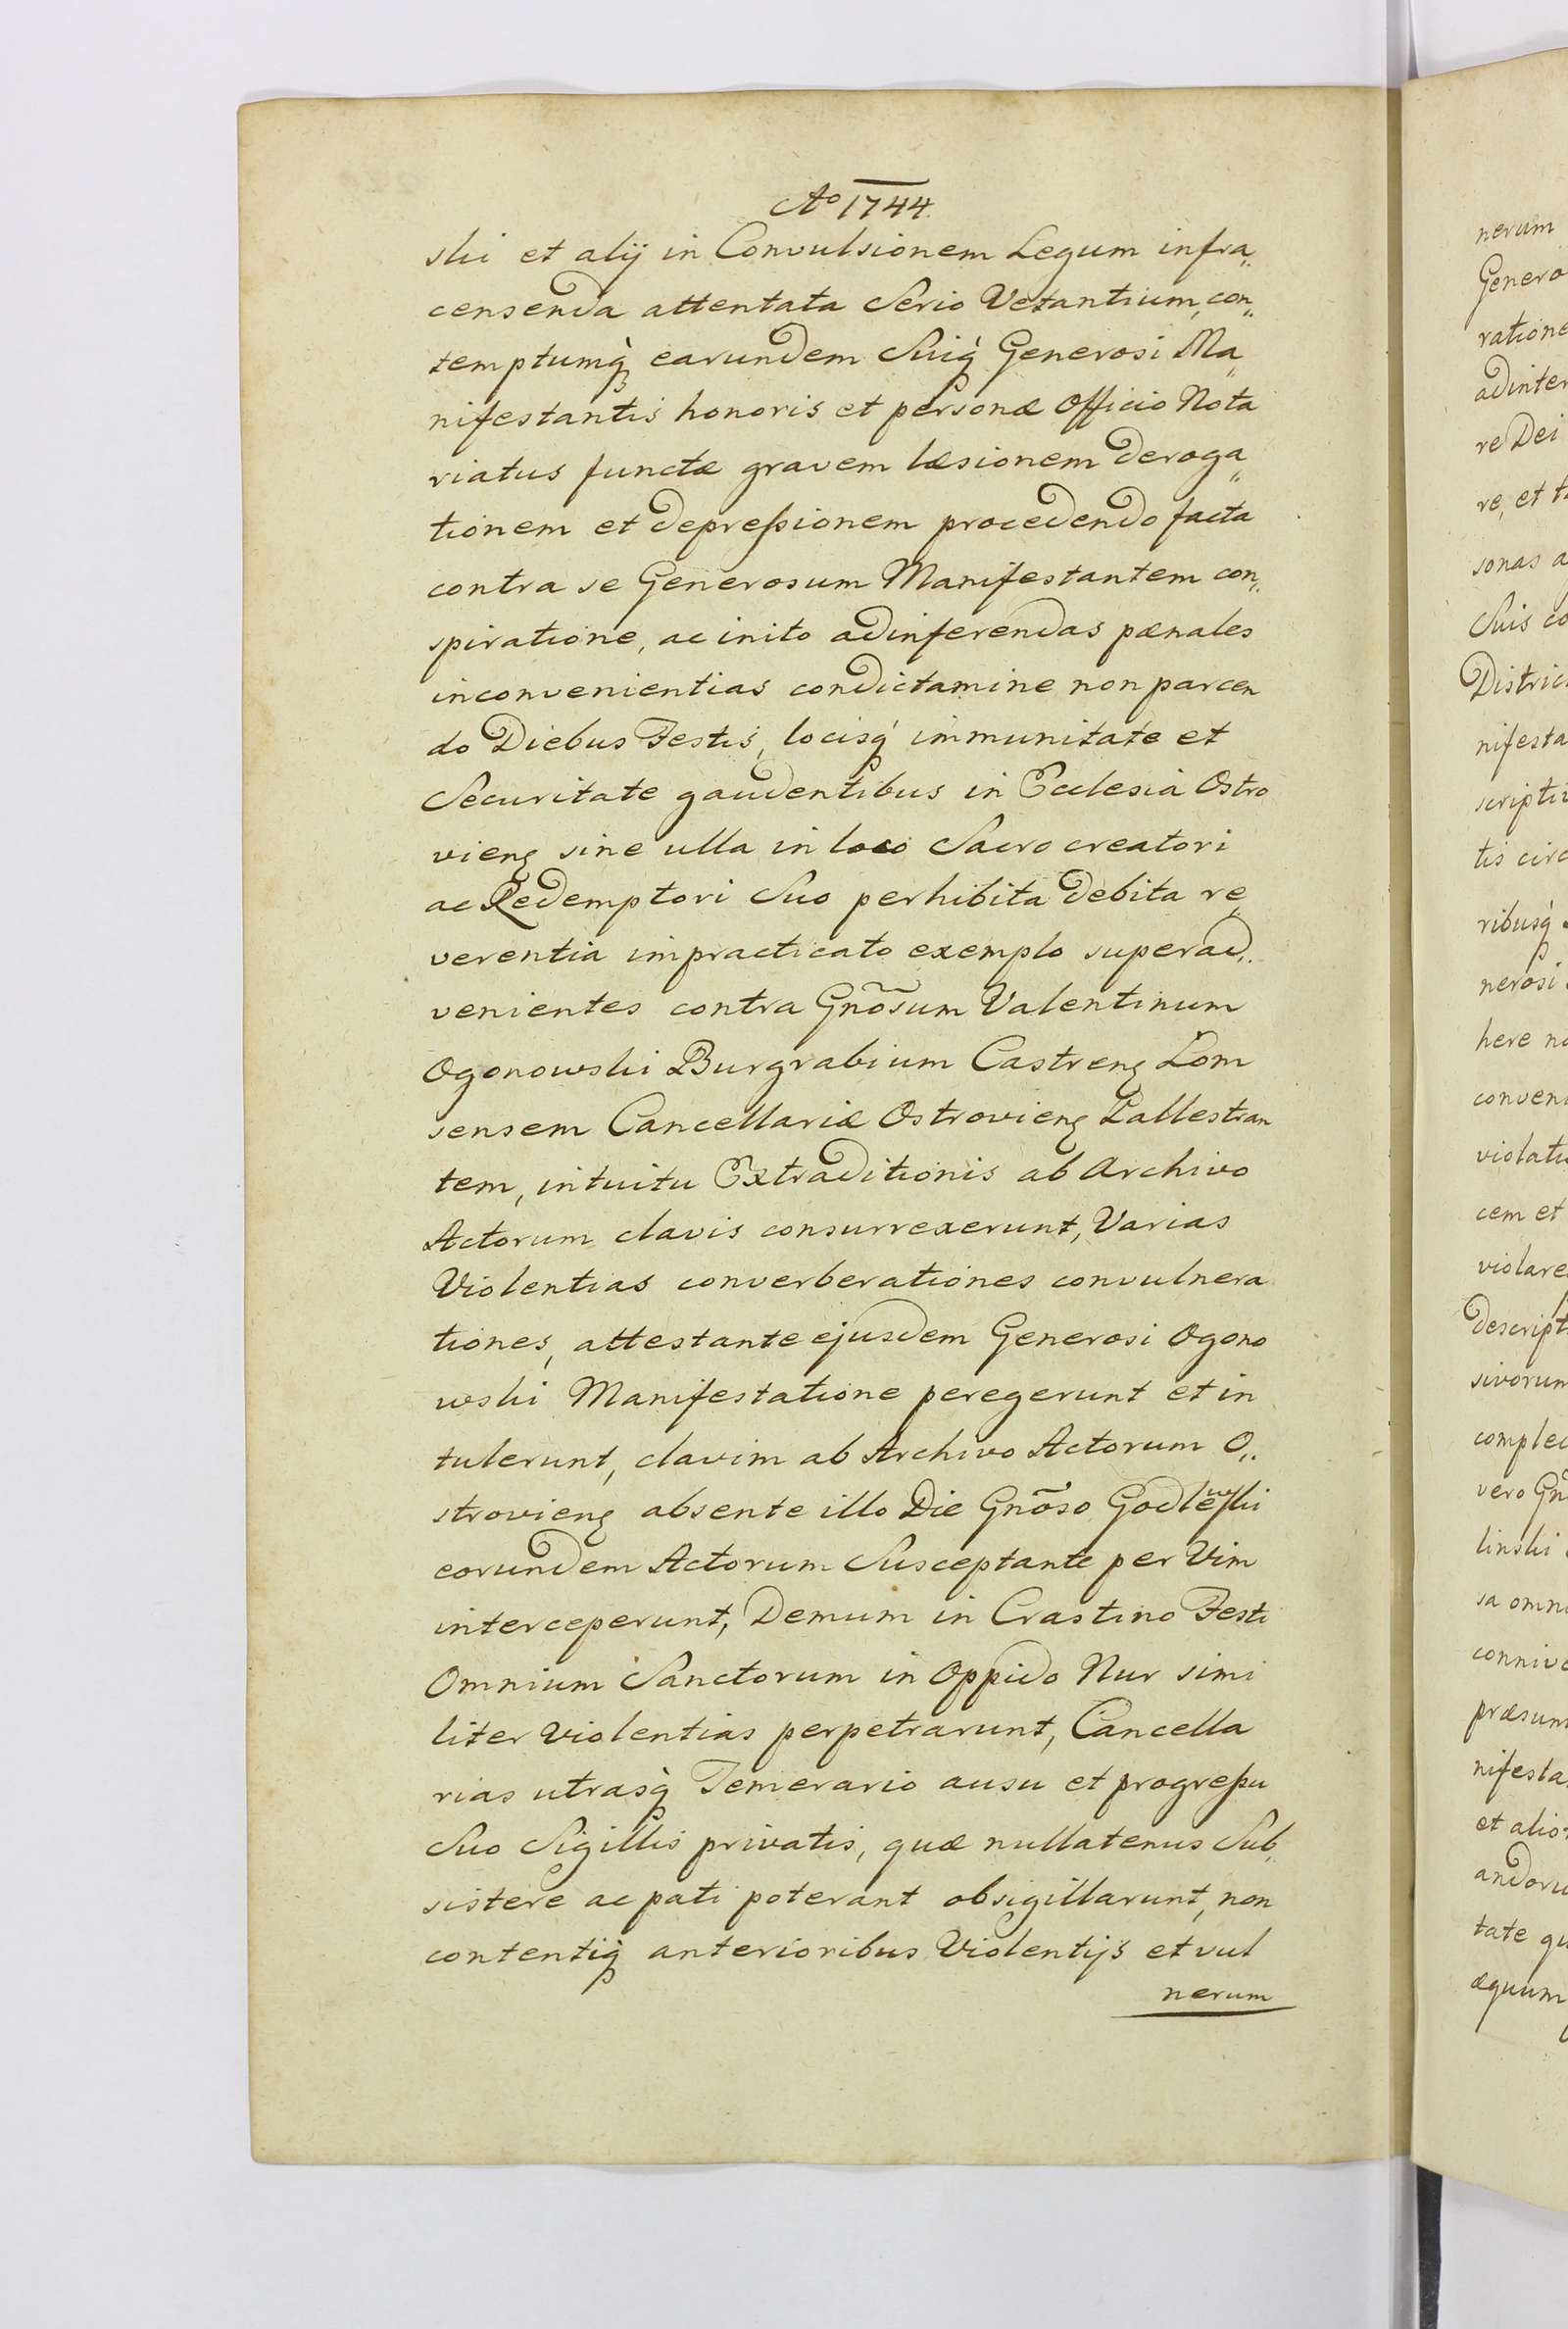 Aᵒ 1744.
ski et alij in Convulsionem Legum infra„
censenda attentata Serio Vetantium, con„
temptumq́ earundem Suiq́ Generosi Ma„
nifestantis honoris et personæ Officio Nota
riatus functæ gravem læsionem deroga„
tionem et depreſsionem procedendo facta
contra se Generosum Manifestantem con„
spiratione, ac inito adinferendas pænales
inconvenientias condictamine non parcen
do Diebus Festis, locisq́ immunitate et
Securitate gaudentibus in Ecclesia Ostro
vienȩ sine ulla in loco Sacro creatori
ac Redemptori Suo perhibita debita re„
verentia impracticato exemplo superad„
venientes contra Gnõsum Valentinum
Ogonowski Burgrabium Castrenȩ Lom
sensem Cancellariæ Ostrovienȩ Pallestran
tem, intuitu Extraditionis ab Archivo
Actorum clavis consurrexerunt, Varias
Violentias converberationes convulnera
tiones, attestante ejusdem Generosi Ogono
wski Manifestatione peregerunt et in
tulerunt, clavim ab Archivo Actorum O„
strovienȩ absente illo Die Gnõso Godlewski
eorundem Actorum Susceptante per Vim
interceperunt, Demum in Crastino Festi
Omnium Sanctorum in Oppido Nur simi
liter Violentias perpetrarunt, Cancella
rias utrasq́ Temerario ausu et progreſsu
Suo Sigillis privatis, quæ nullatenus Sub„
sistere ac pati poterant obsigillarunt, non
contentiq́ anterioribus Violentijs et vul
nerum
nerum
Genero
ratione
adinter
re Dei
re, et
sonas a
Suis co
Distric
nifesta
scripti
tis circ
ribusq́
nerosi
here
conveni
violati
cem et
violare
descript
sivorum
complec
vero
linski
sa omni
connive
præsum
nifesta
et alio
andoru
tate qu
æquum